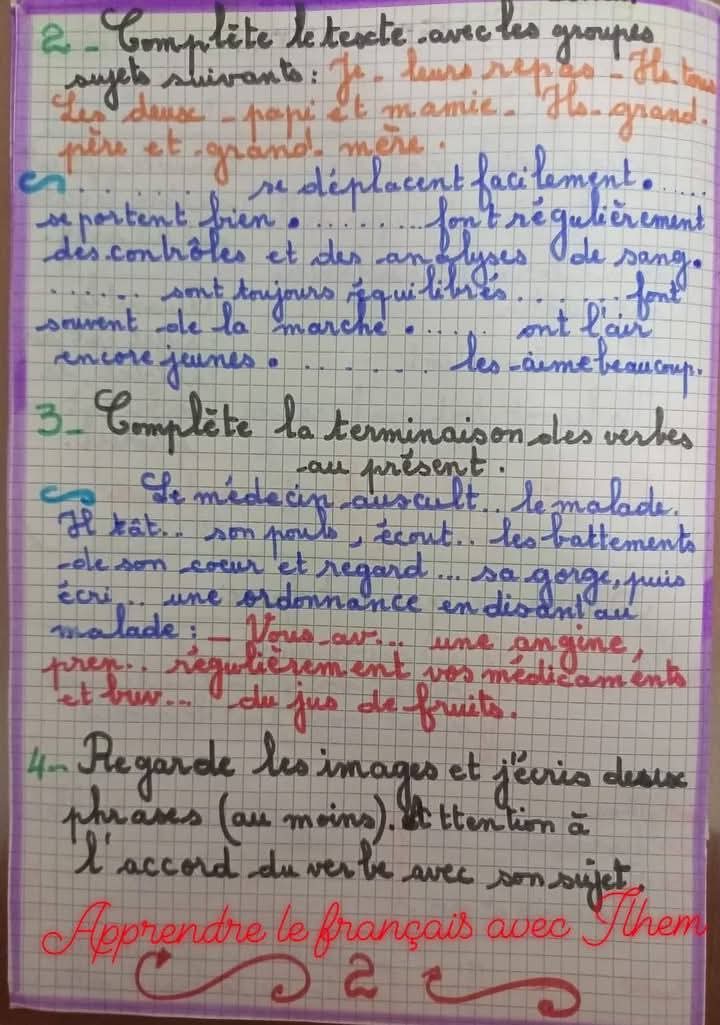 2- Complète le texte avec les groupes
sujets suivants : Je - leurs repas - Ils tous
Les deux - papi et mamie - Ils - grand-
père et grand-mère.
. . . . . . . se déplacent facilement. .....
se portent bien. ......... font régulièrement
des contrôles et des analyses de sang.
....... sont toujours équilibrés. ...... font
souvent de la marche. ..... ont l'air
encore jeunes. ....... les aime beaucoup.
3- Complète la terminaison des verbes
au présent.
Le médecin auscult.. le malade.
Il tât... son pouls, écout.. les battements
de son coeur et regard... sa gorge, puis
écri... une ordonnance en disant au
malade : - Vous av... une angine,
pren.. régulièrement vos médicaments
et buv... du jus de fruits.
4- Regarde les images et j'écris deux
phrases (au moins). Attention à
l'accord du verbe avec son sujet.
Apprendre le français avec Ilhem
2